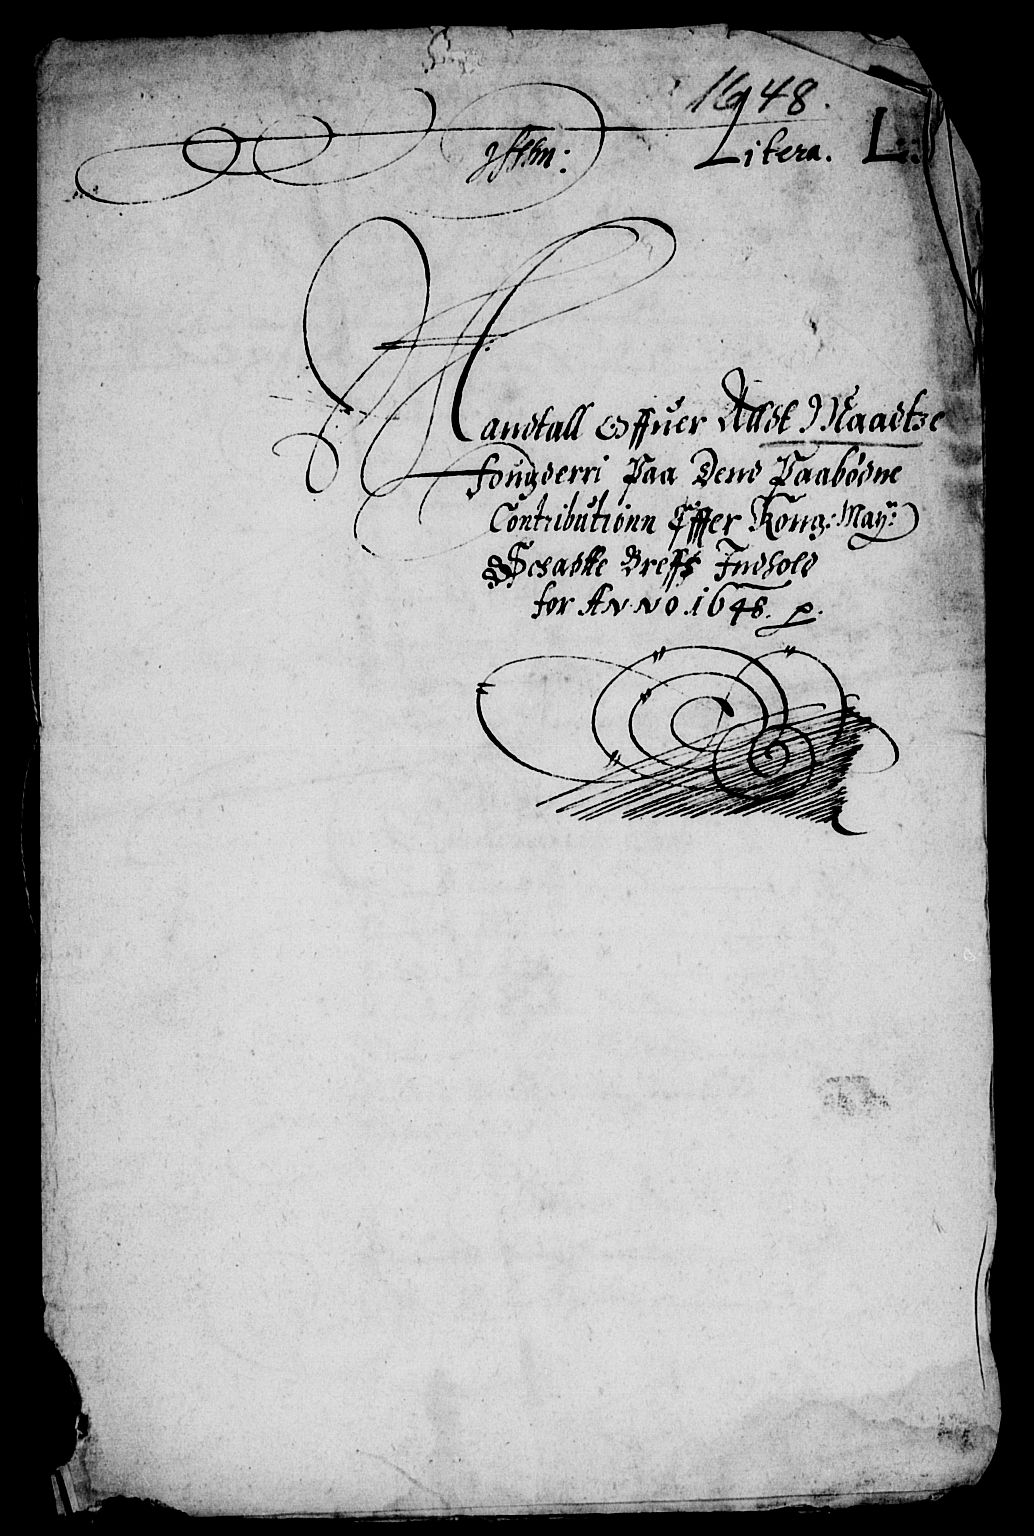 1648.
Litera. L:
Mandtall Offuer Alldt Maadtze
fougderri Paa Dend Paabódne
Contributiónn Efffer Kong: May:
Schadtte Breffs Indhold
for ANNO. 1648.